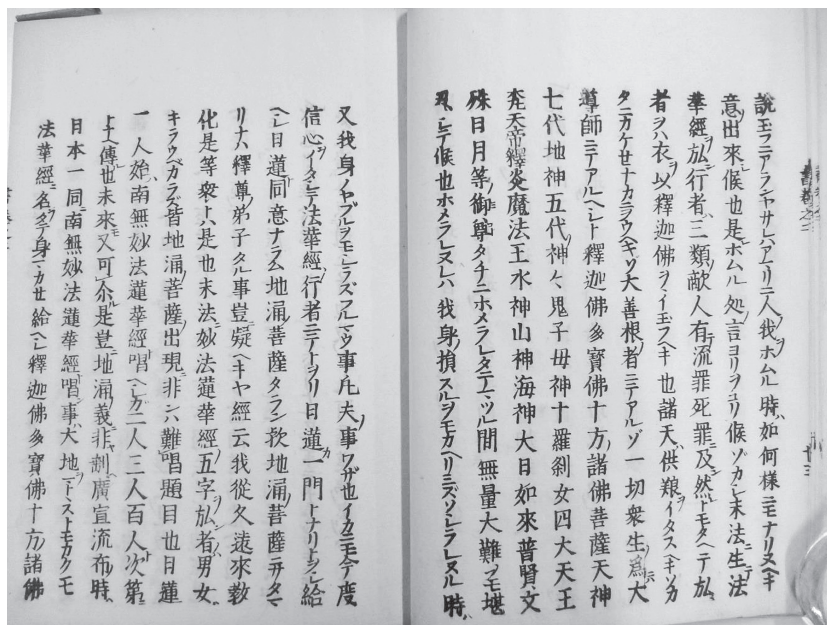 說玉フニアラシヤサレハアマリニ人ノ我ヲホムル時ハ如何樣ニモナリタキ
意ノ出來候也是ホムル処ノ言ヨリヲコリ候ゾカシ末法ニ生テ法
華經ヲ弘ン行者ハ三類ノ敵人有テ流罪死罪ニ及ン然レトモタヘテ弘ン
者ヲハ衣ヲ以テ釋迦佛ヲヽイ玉フヘキ也諸天ハ供粮ヲイタスヘキソカ
タニカケセナカニヲウヘキソ大善根ノ者ニテアルゾ一切衆生ノ爲ニハ大
導師ニテアルヘシト釋迦佛多寶佛十方ノ諸佛菩薩天神
七代地神五代ノ神々鬼子母神十羅刹女四大天王
梵天帝釋炎魔法王水神山神海神大日如來普賢文
殊日月等ノ御尊タチニホメラレタテマツル間無量ノ大難ヲモ堪
忍シテ候也ホメラレヌレハ我身ノ損スルヲモカヘリミズソシラレヌル時ハ
又我身ノヤブルヽヲモシラズフルマウ事ハ凡夫ノ事ワザ也イカニモ今度
信心ヲイタシテ法華經ノ行者ニテトヲリ日蓮カ一門トナリトヲシ給
ヘシ日蓮ト同意ナラハ地涌ノ菩薩タラン歟地涌ノ菩薩ニサタマ
リナハ釋尊ノ弟子タル事豈疑ヘキヤ經云我從久遠來教
化是等衆トハ是也末法ニシテ妙法蓮華經ノ五字ヲ弘ン者ハ男女ハ
キラウベカラズ皆地涌ノ菩薩ノ出現ニ非スンハ難唱題目也日蓮
一人始ハ南無妙法蓮華經ト唱ヘシガ二人三人百人ト次第ニ
傳フル也未來モ又可尓ル是豈地涌ノ義ニ非スヤ剰ヘ廣宣流布ノ時ハ
日本一同ニ南無妙法蓮華經ト唱ン事ハ大地ヲマトトストモカクモ
法華經ニ名ヲタテ身ヲマカセ給ヘシ釋迦佛多寶佛十方ノ諸佛